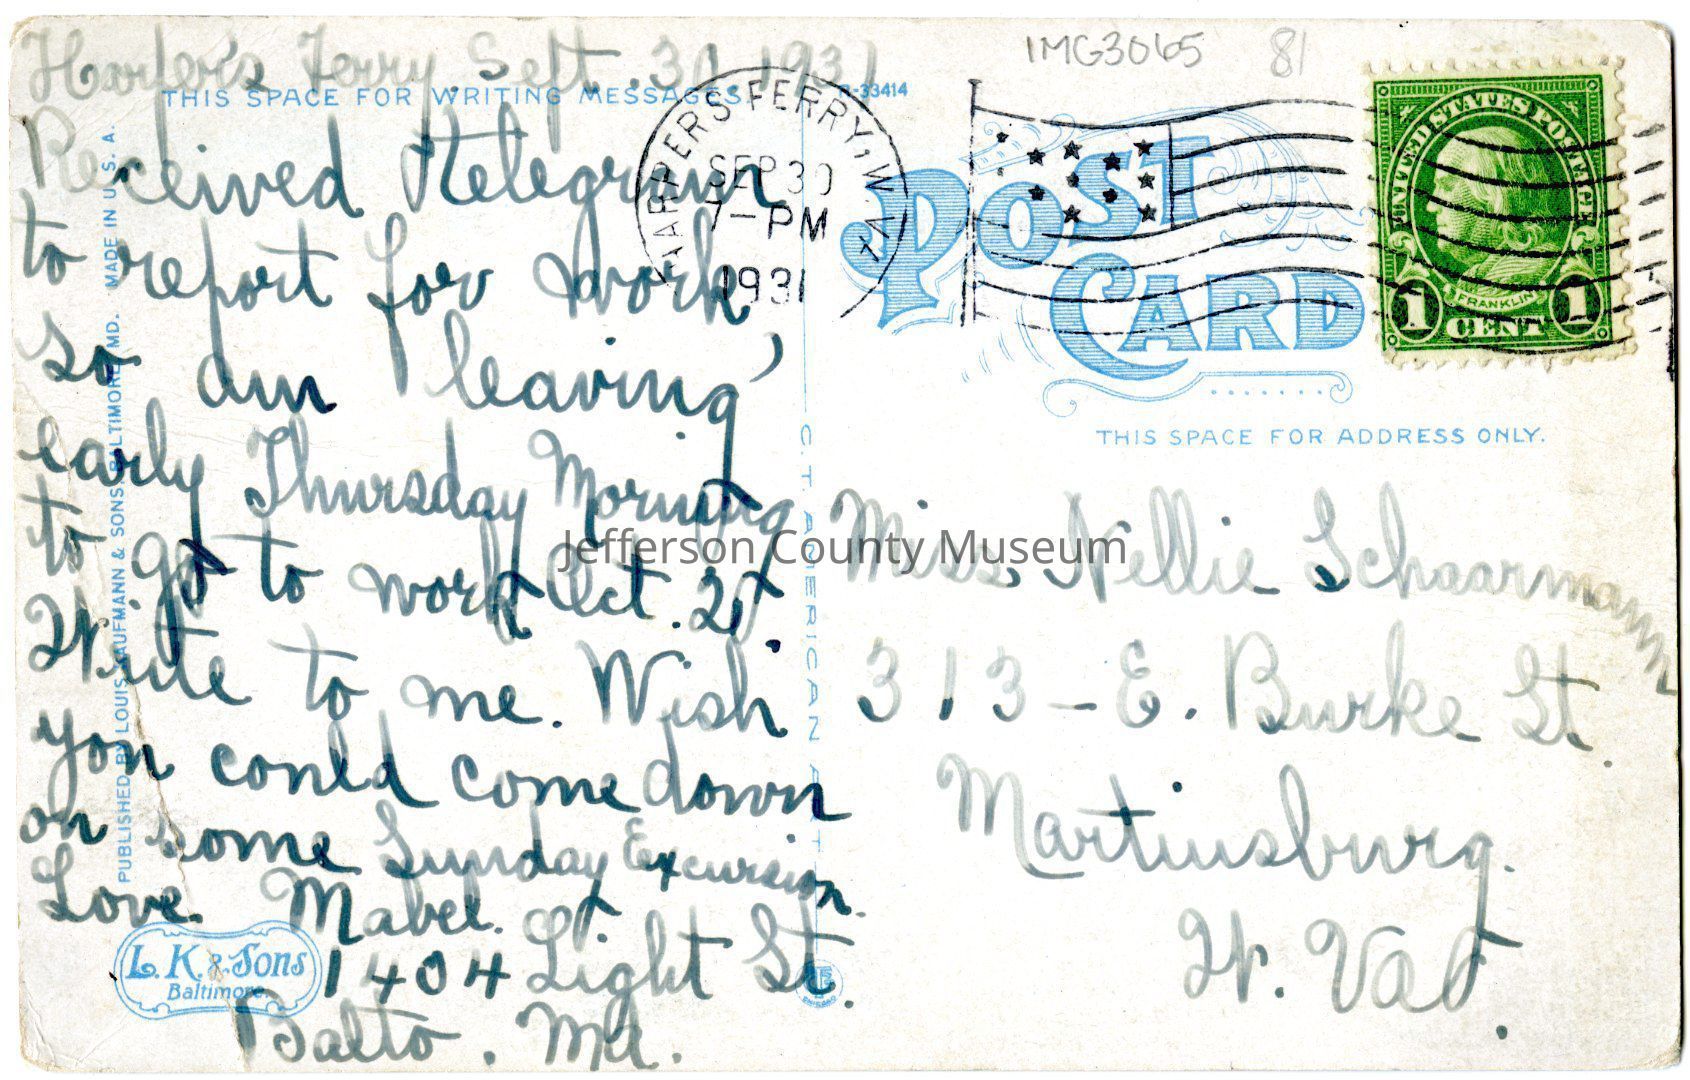 Harper's Ferry Sept. 30 1931
Received Telegram
to report for work
so am leaving
early Thursday Morning
to go to work Oct. 2d.
Write to me. Wish
you could come down
on some Sunday Excursion.
Love. Mabel.
1404 Light St.
Balto. Md.
THIS SPACE FOR WRITING MESSAGES.
R-33414
PUBLISHED BY LOUIS KAUFMANN & SONS, BALTIMORE, MD. MADE IN U.S.A.
L. K. & Sons
Baltimore.
C.T. AMERICAN ART
CHICAGO
HARPERS FERRY, W. VA.
SEP 30
7-PM
1931
IMG3065 81
POST
CARD
UNITED STATES POSTAGE
FRANKLIN
1 CENT 1
THIS SPACE FOR ADDRESS ONLY.
Miss Nellie Schaarmann
313-E. Burke St
Martinsburg.
W. Va.
Jefferson County Museum